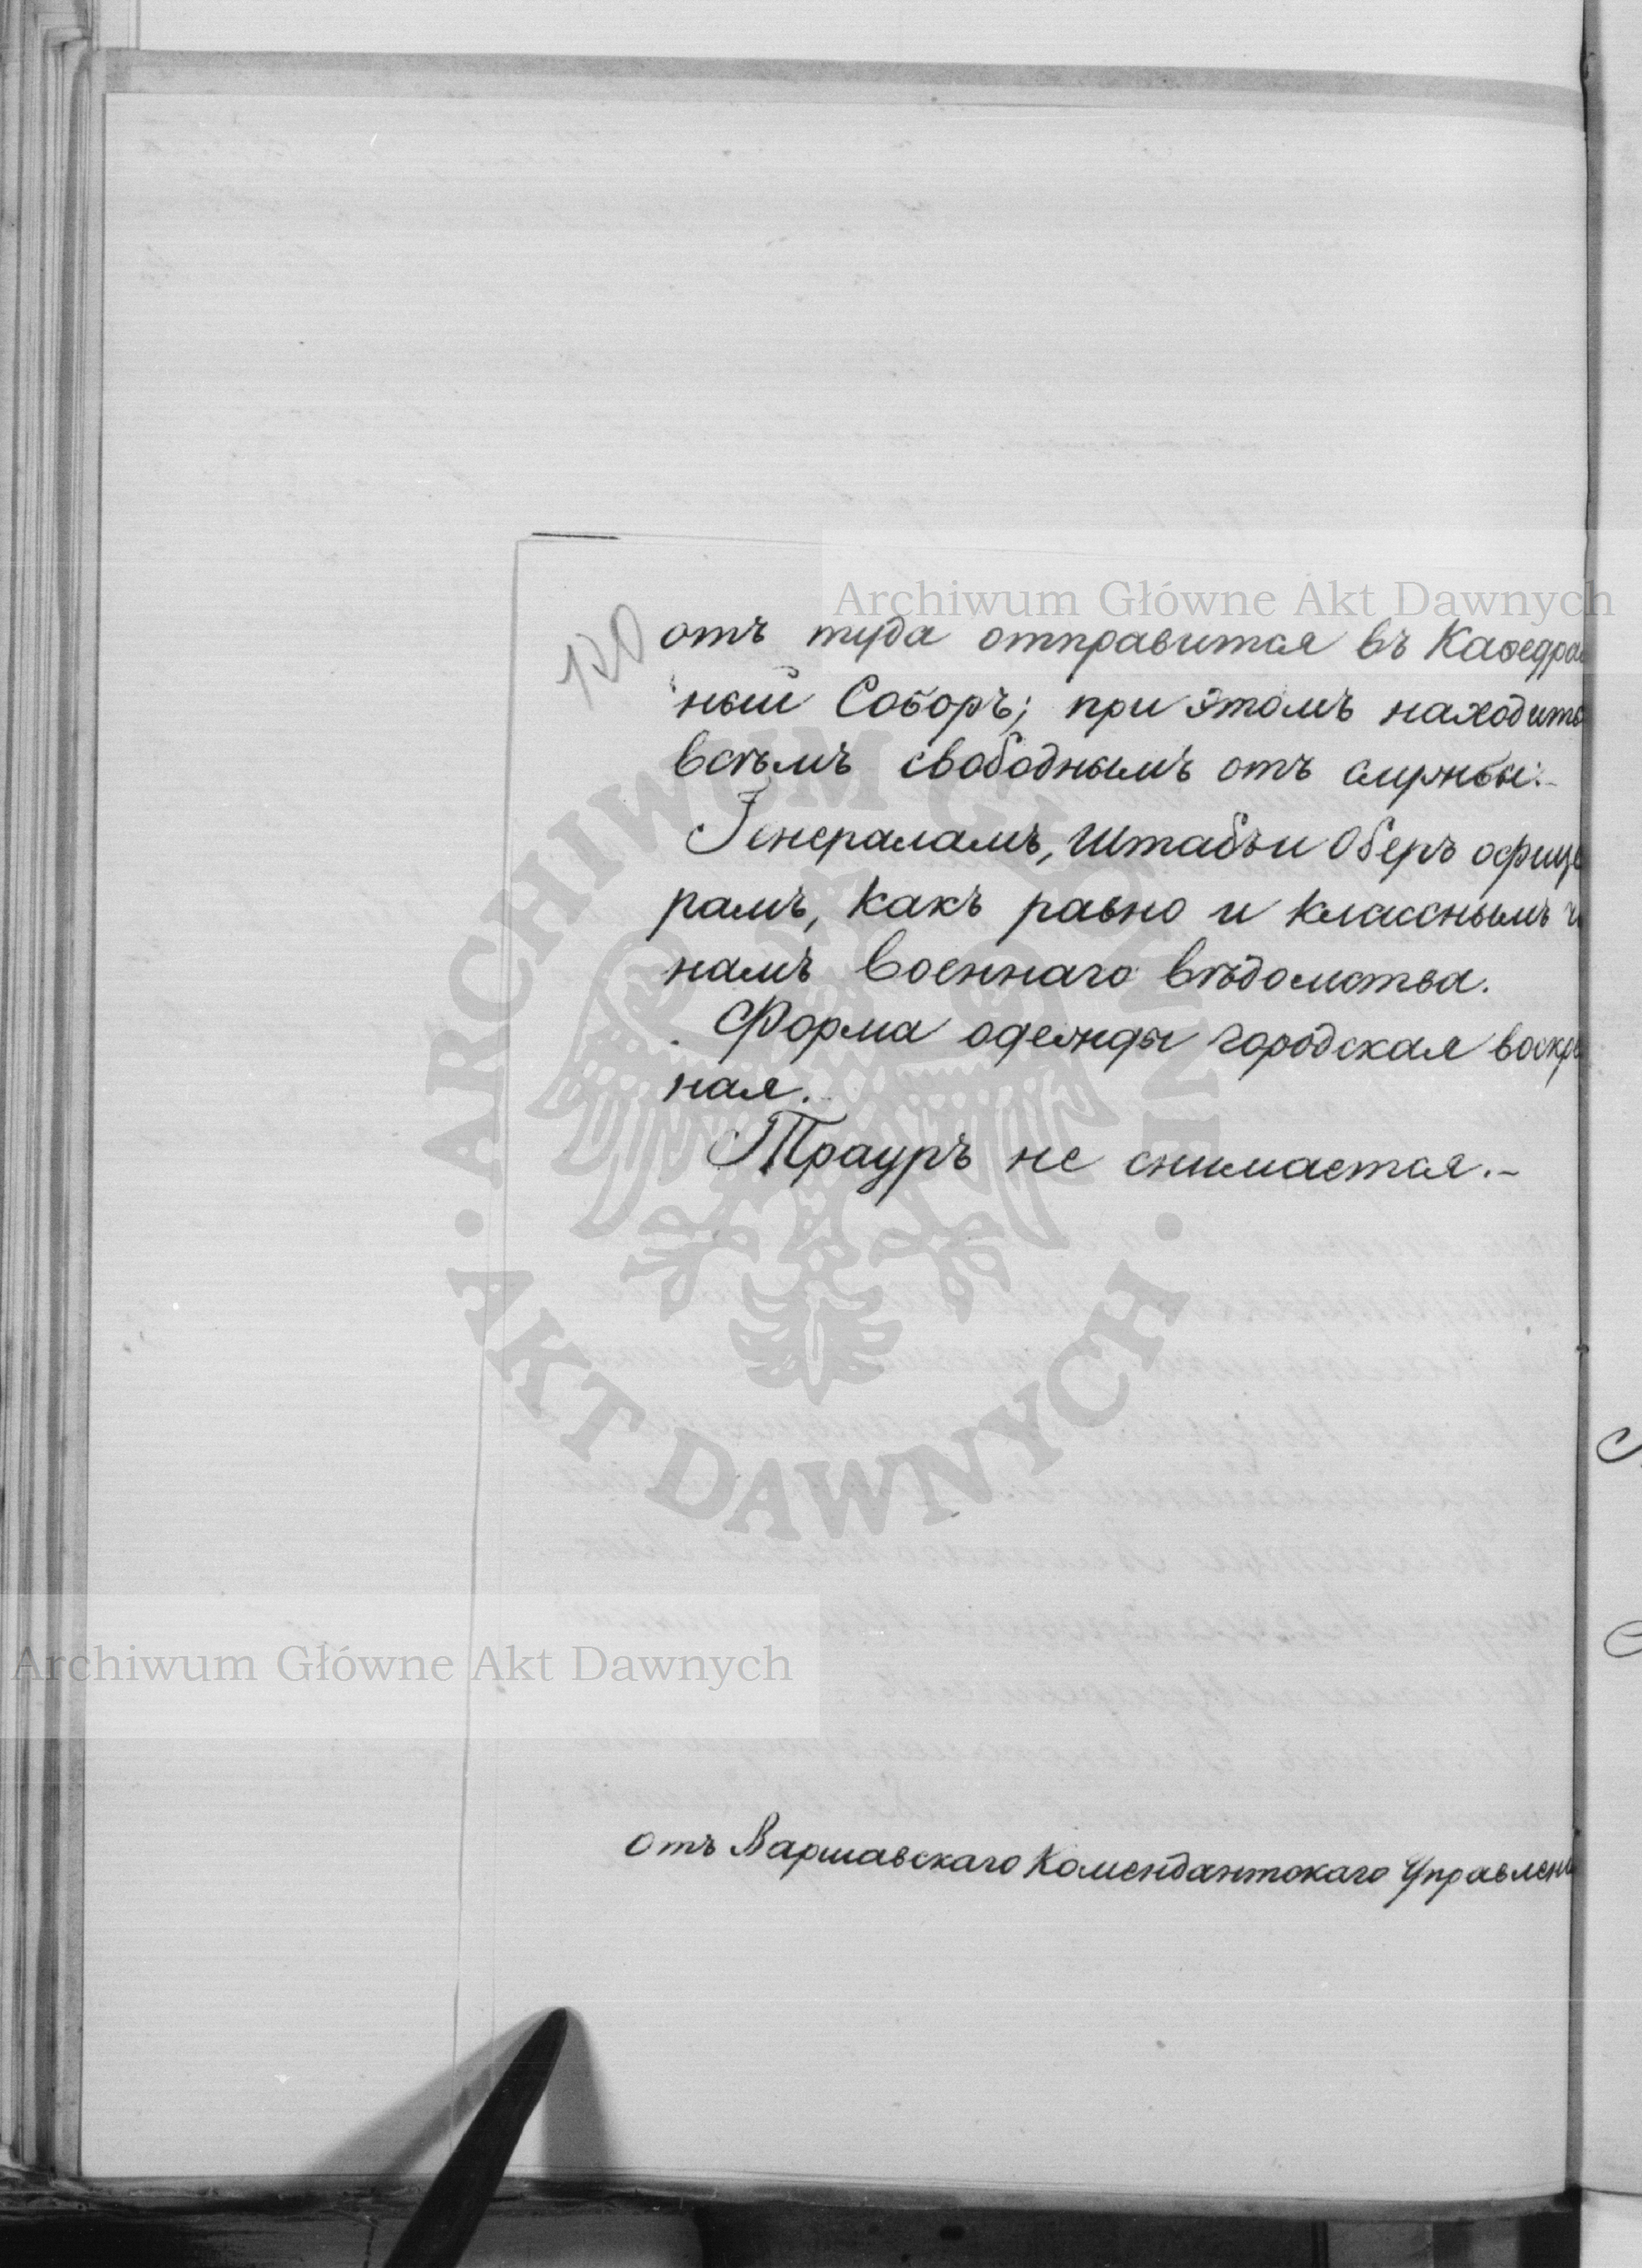 Archiwum Główne Akt Dawnych
120
отъ туда отправится въ Каѳедра
ный Соборъ; при этомъ находить
всѣмъ свободнымъ отъ службы:-
Генераламъ, Штабъ и Оберъ офице
рамъ, какъ равно и класснымъ чи
намъ военнаго вѣдомства.
Форма одежды городская воскре
ная.
Трауръ не снимается.-
ARCHIWUM GŁÓWNE AKT DAWNYCH
Archiwum Główne Akt Dawnych
Отъ Варшавскаго Комендантскаго Управлені